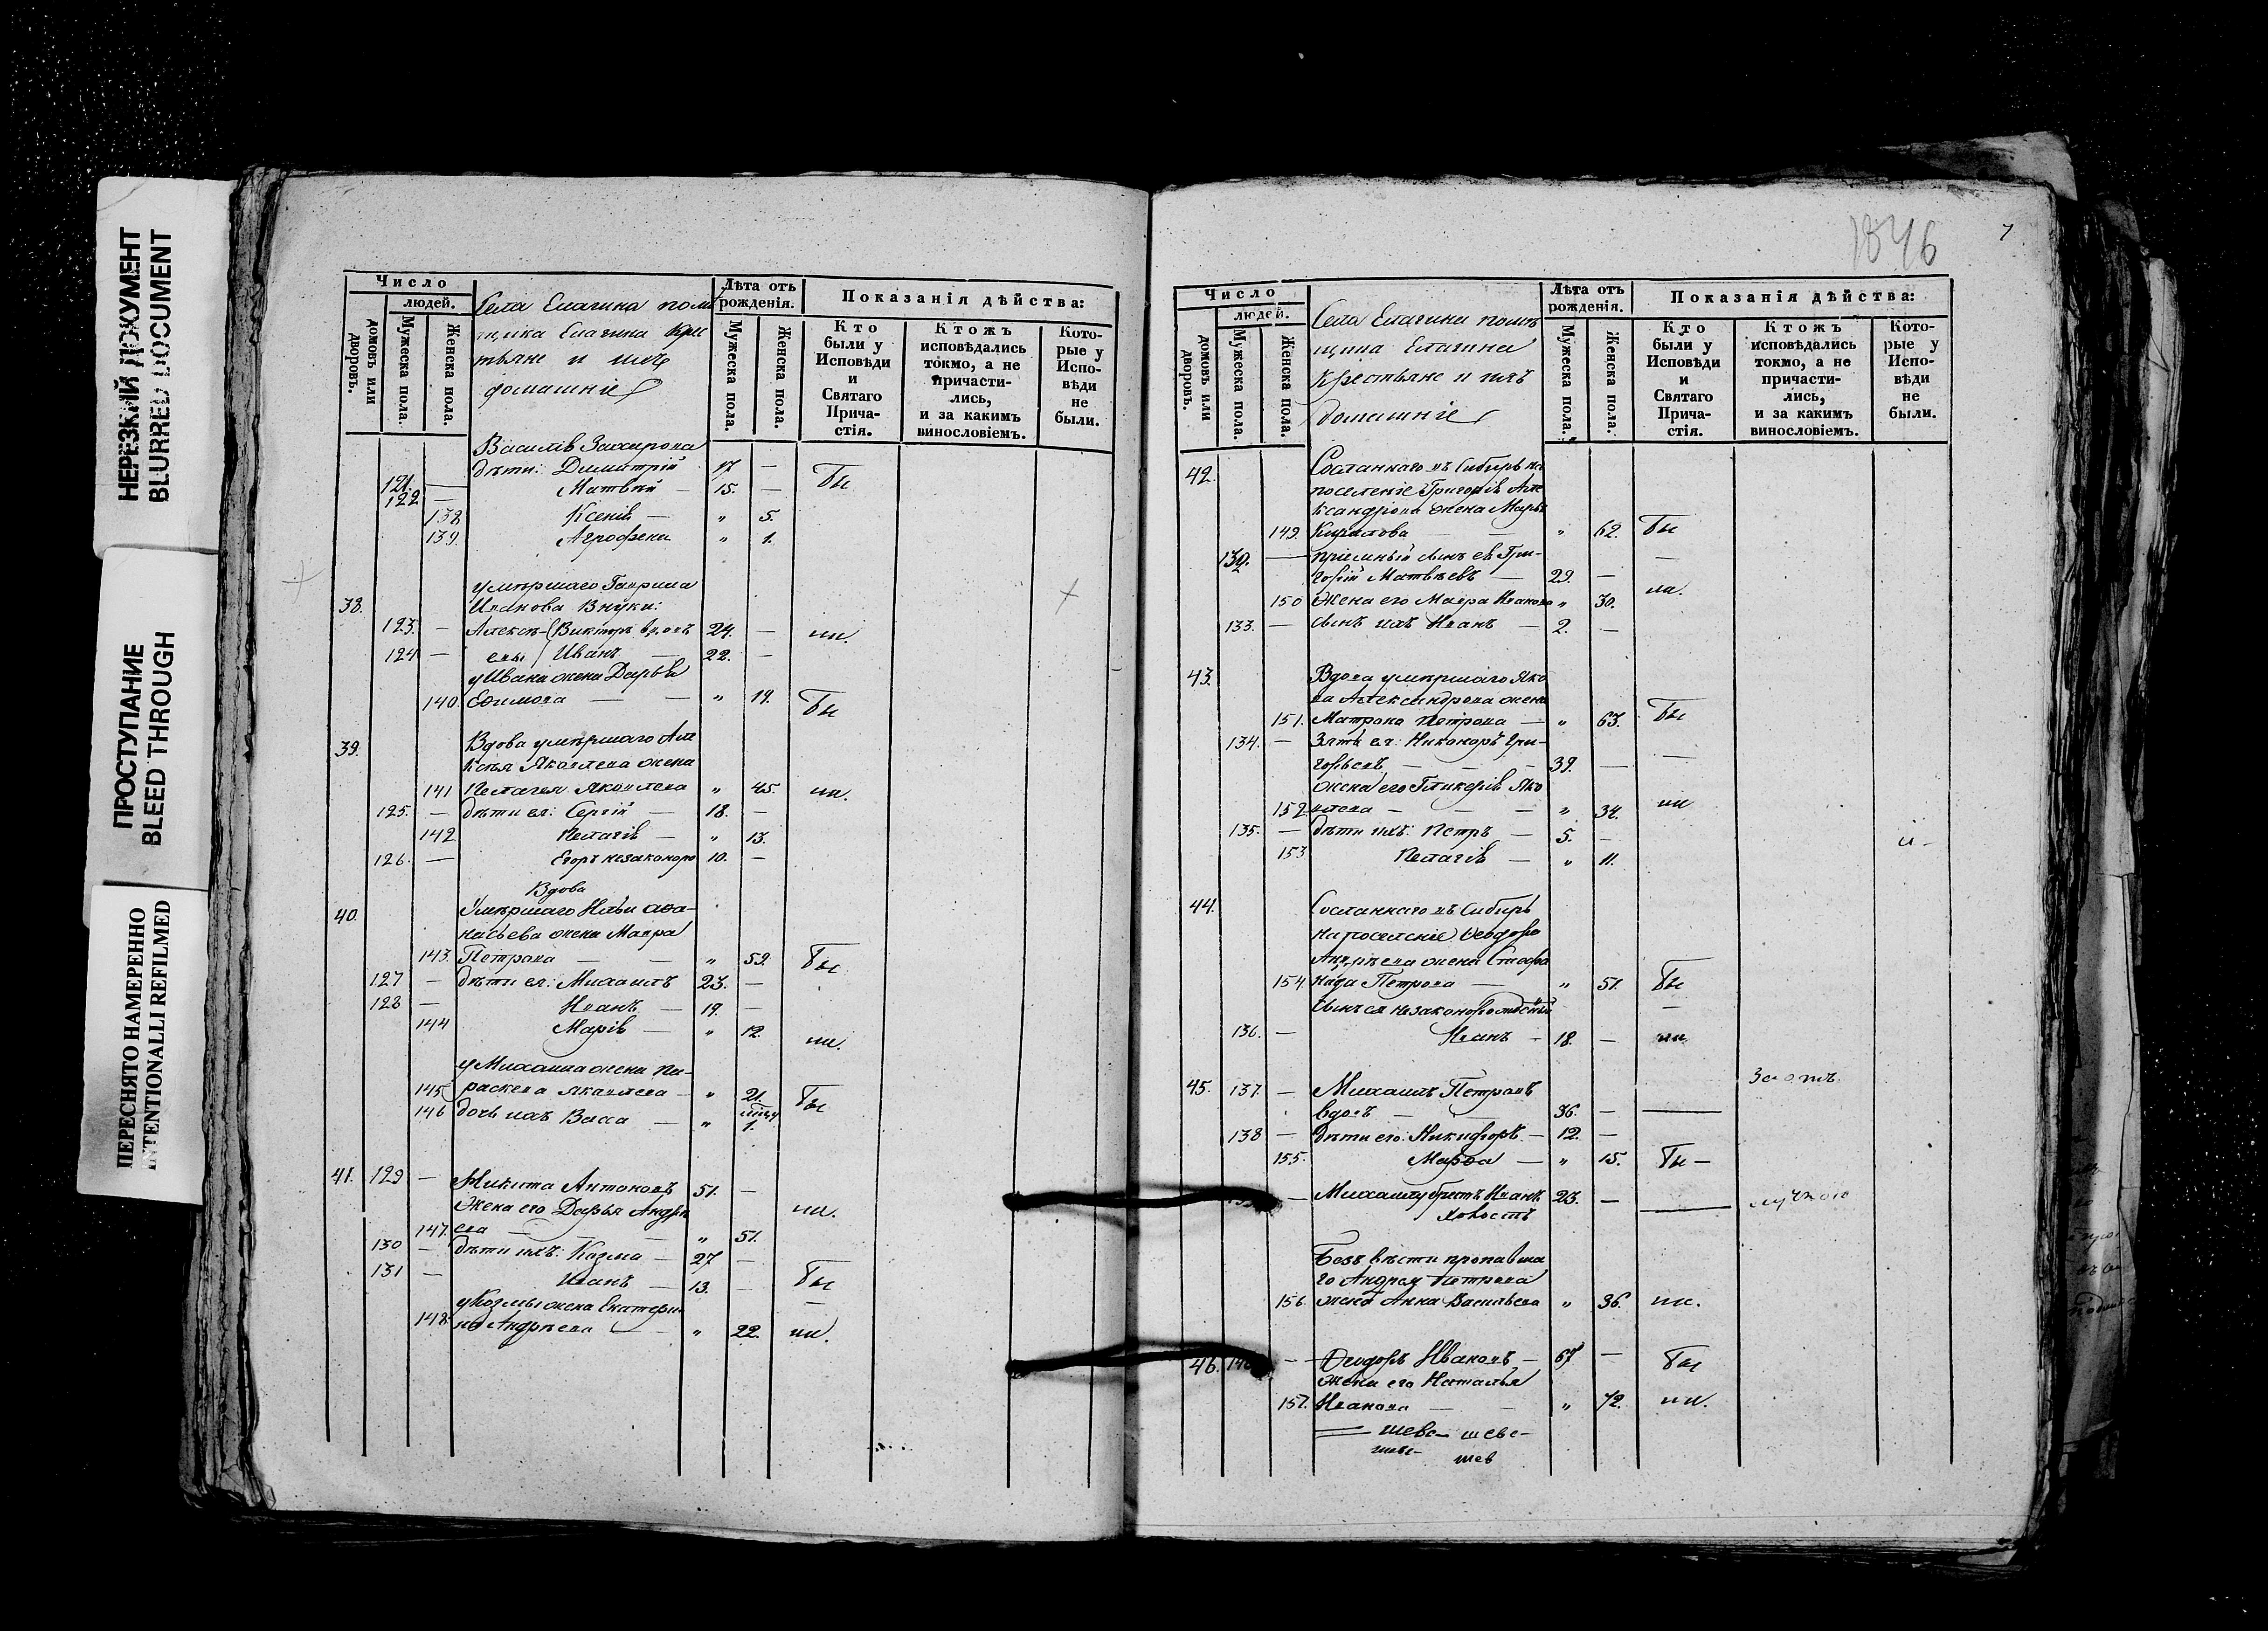 НЕРЕЗКИЙ ДОКУМЕНТ
BLURRED DOCUMENT
ПРОСТУПАНИЕ
BLEED THROUGH
ПЕРЕСНЯТО НАМЕРЕННО
INTENTIONALLI REFILMED
Число
людей.
домовъ или дворовъ.
Мужеска пола.
Женска пола.
Села Елагина помѣ
щика Елагина Крес
тьяне и ихъ
домашніе
Лѣта отъ рожденія.
Мужеска пола.
Женска пола.
Показанія дѣйства:
Кто были у Исповѣди и Святаго Прича- стія.
Ктожъ исповѣдались токмо, а не причасти- лись, и за какимъ винословіемъ.
Кото- рые у Испо- вѣди не были.
Василія Захарова
121. — дѣти: Димитрій 17 — Бы
122 — Матвѣй — 15. —
138 Ксенія — " 5.
139. Агрофена " 1.
умершаго Гаврила
38. Иванова внуки:
123. — Алексѣ- Викторъ вдовъ 24. — ли.
124 — евы Иванъ — 22. —
у Ивана жена Дарья
140. Ефимова — — " 19. Бы
39. Вдова умершаго Але
ксѣя Яковлева жена
141 Пелагея Яковлева " 45. ли.
125. — дѣти ея: Сергій — 18. —
142 Пелагія — " 13.
126. — Егоръ незаконоро 10. —
Вдова
40. Умершаго Ильи Афа-
насьева жена Мавра
143. Петрова — — " 59. Бы
127 — дѣти ея: Михаилъ 23. —
128 — Иванъ — 19. —
144 Марія — " 12. ли.
у Михаила жена Па-
145 раскева Яковлева — " 21. Бы
146 дочь ихъ Васса — " 1.
41. 129 — Никита Антоновъ 51. —
Жена его Дарья Андре ли.
147. ева — — " 51.
130 — дѣти ихъ: Козма — 27 —
131 — Иванъ — 13. — Бы
у Козмы жена Екатери-
148. на Андреева — " 22. ли.
1846
7
Число
людей.
домовъ или дворовъ.
Мужеска пола.
Женска пола.
Села Елагина помѣ
щика Елагина
Крестьяне и ихъ
домашніе
Лѣта отъ рожденія.
Мужеска пола.
Женска пола.
Показанія дѣйства:
Кто были у Исповѣди и Святаго Прича- стія.
Ктожъ исповѣдались токмо, а не причасти- лись, и за какимъ винословіемъ.
Кото- рые у Испо- вѣди не были.
42. Сосланнаго въ Сибирь на
поселеніе Григорія Але
ксандрова жена Марья
149. Кирилова — — " 62. Бы
132. — пріемный сынъ ея Гри- —
горій Матвѣевъ — 29. —
150 Жена его Мавра Иванова " 30. ли.
133. — сынъ ихъ Иванъ — 2. —
43. Вдова умершаго Яко
ва Александрова жена
151. Матрона Петрова — " 63. Бы
134. — Зять ея: Никаноръ Гри-
горьевъ — — — 39. — —
жена его Гликерія Яко
152 влева — — — " 34. ли
135. — дѣти ихъ: Петръ — 5. —
153 Пелагія — " 11.
44. Сосланнаго въ Сибирь
на поселеніе Феодора
Андреева жена Стефа
154 нида Петрова — " 51. Бы
сынъ ея незаконорожденый —
136. — Иванъ — 18. — ли
45. 137. — Михаилъ Петровъ
вдовъ — — 36. — —
138 — дѣти его: Никифоръ — 12. —
155. Марфа — " 15. Бы —
— Михаилу братъ Иванъ 23. — —
Холостъ
Безъ вѣсти пропавша
го Андрея Петрова
156. жена Анна Васильева " 36. ли.
46. 140 — Феодоръ Ивановъ — 67 — Бы
жена его Наталья
157. Иванова — — " 72. ли.